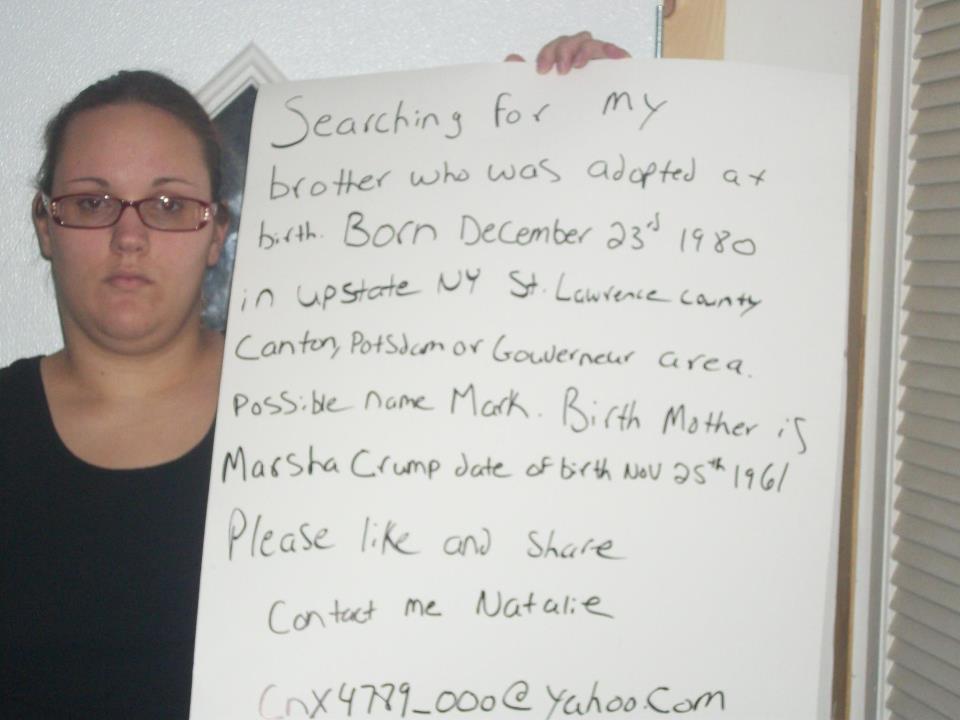 Searching for my
brother who was adopted at
birth. Born December 23rd 1980
in upstate NY St. Lawrence county
Canton, Potsdam or Gouverneur area.
possible name Mark. Birth Mother is
Marsha Crump date of birth Nov 25th 1961
Please like and share
Contact me Natalie
Cnx4779_000@yahoo.com